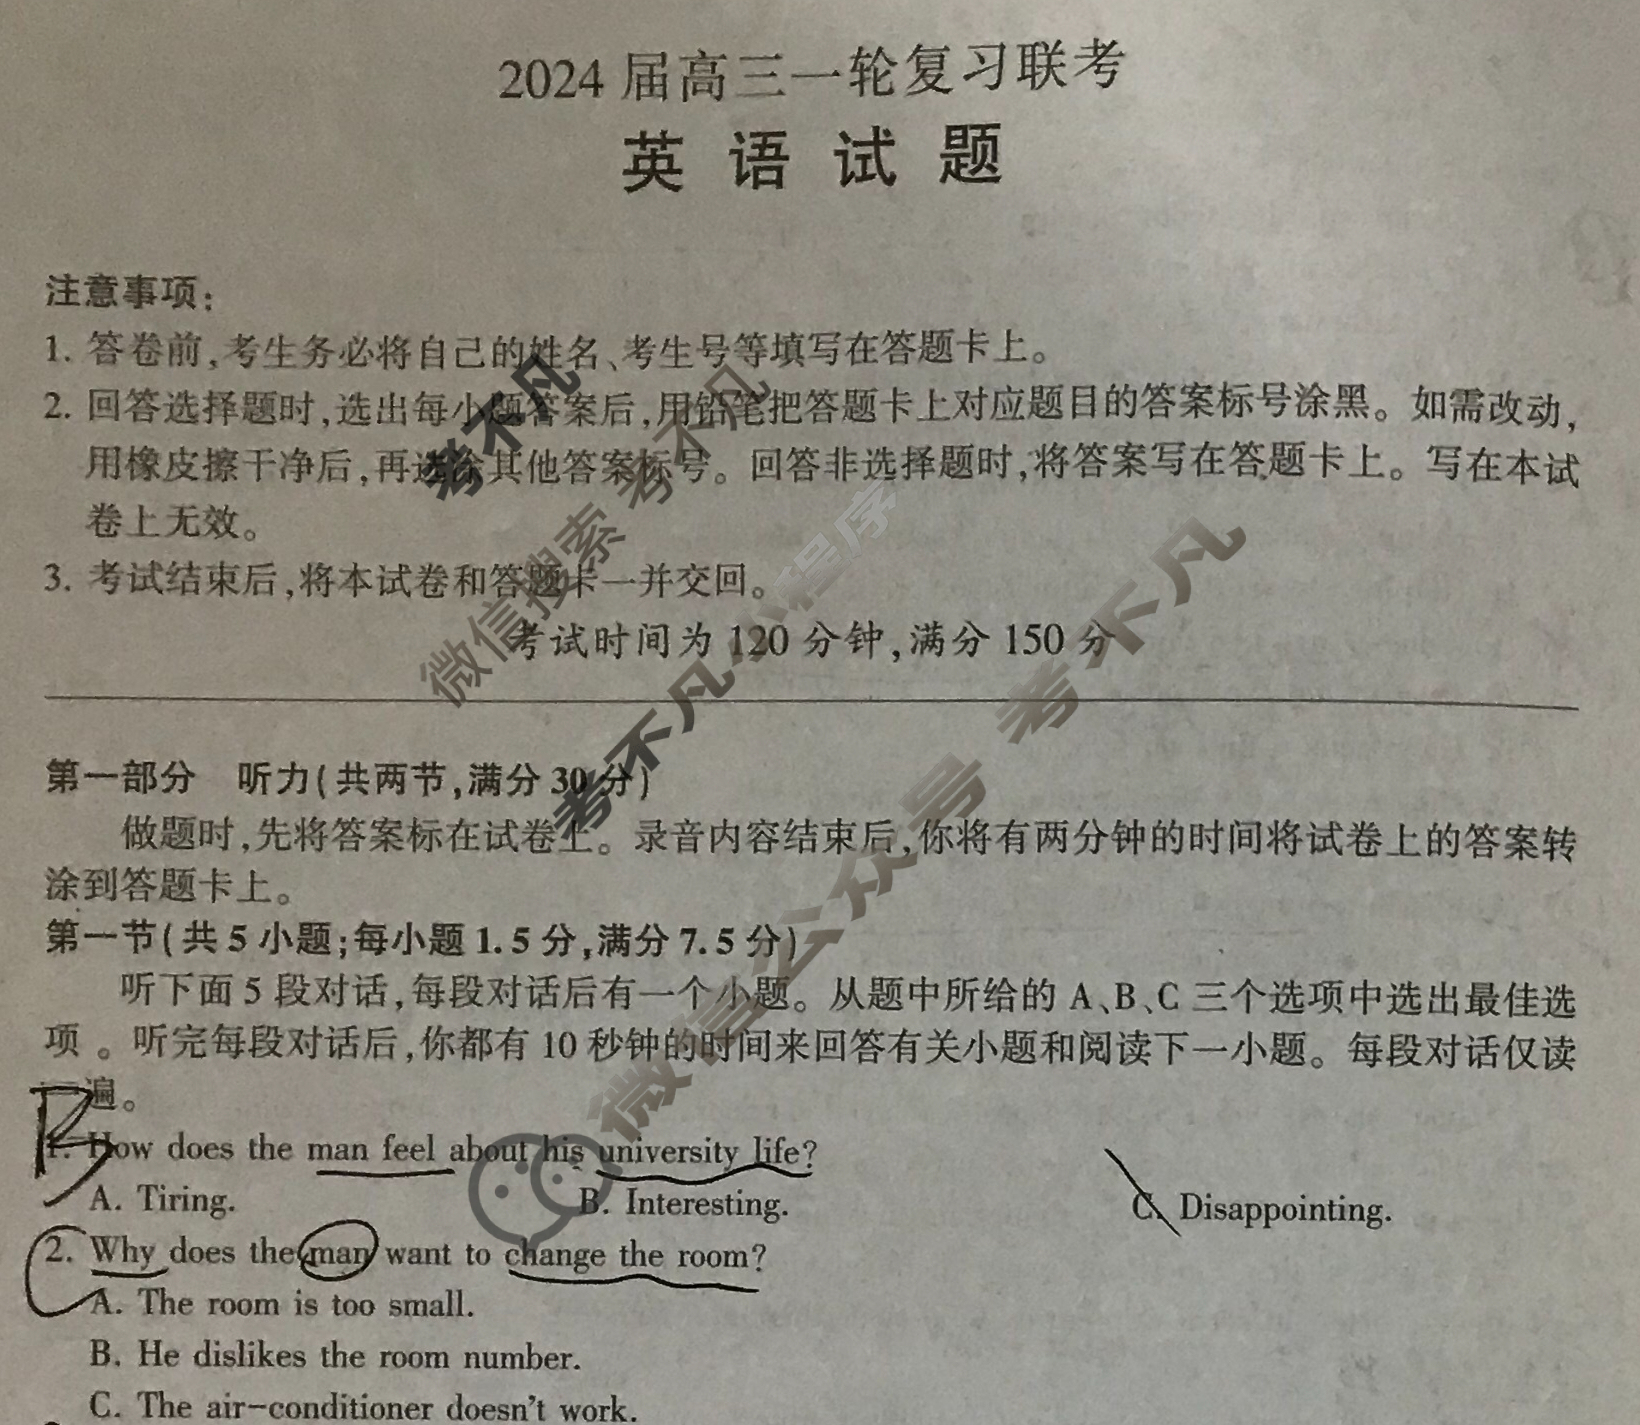 2024 届高三一轮复习联考
英 语 试 题
注意事项:
1. 答卷前,考生务必将自己的姓名、考生号等填写在答题卡上。
2. 回答选择题时,选出每小题答案后,用铅笔把答题卡上对应题目的答案标号涂黑。如需改动,
用橡皮擦干净后,再选涂其他答案标号。回答非选择题时,将答案写在答题卡上。写在本试
卷上无效。
3. 考试结束后,将本试卷和答题卡一并交回。
考试时间为 120 分钟,满分 150 分
考不凡
微信搜索 考不凡
考不凡小程序
微信公众号 考不凡
第一部分 听力(共两节,满分 30 分)
做题时,先将答案标在试卷上。录音内容结束后,你将有两分钟的时间将试卷上的答案转
涂到答题卡上。
第一节(共 5 小题;每小题 1.5 分,满分 7.5 分)
听下面 5 段对话,每段对话后有一个小题。从题中所给的 A、B、C 三个选项中选出最佳选
项 。听完每段对话后,你都有 10 秒钟的时间来回答有关小题和阅读下一小题。每段对话仅读
一遍。
B
1. How does the man feel about his university life?
A. Tiring. B. Interesting. C. Disappointing.
C
2. Why does the man want to change the room?
A. The room is too small.
B. He dislikes the room number.
C. The air-conditioner doesn't work.